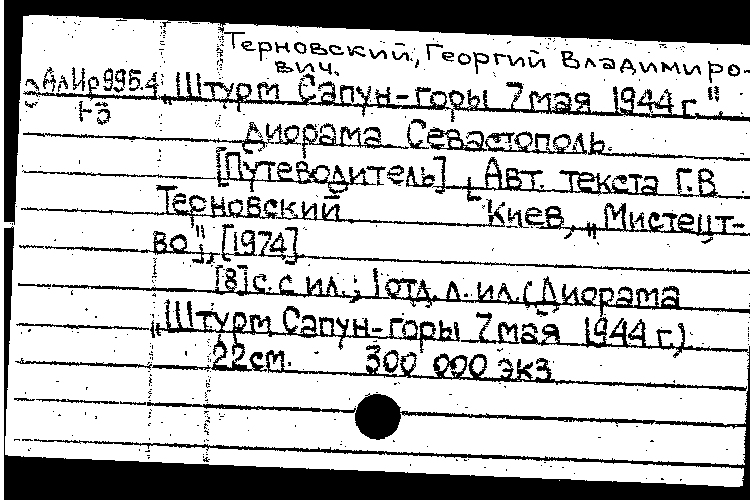 Терновский, Георгий Владимиро-
вич.
АлИр995.4 „Штурм Сапун-горы 7 мая 1944 г.".
1-5
Диорама. Севастополь.
[Путеводитель]. [Авт. текста Г.В.
Терновский. Киев, „Мистецт-
во"], [1974].
[8] с. с ил.; 1 отд. л. ил. (Диорама
„Штурм Сапун-горы 7 мая 1944 г.)
22см. 300 000 экз.